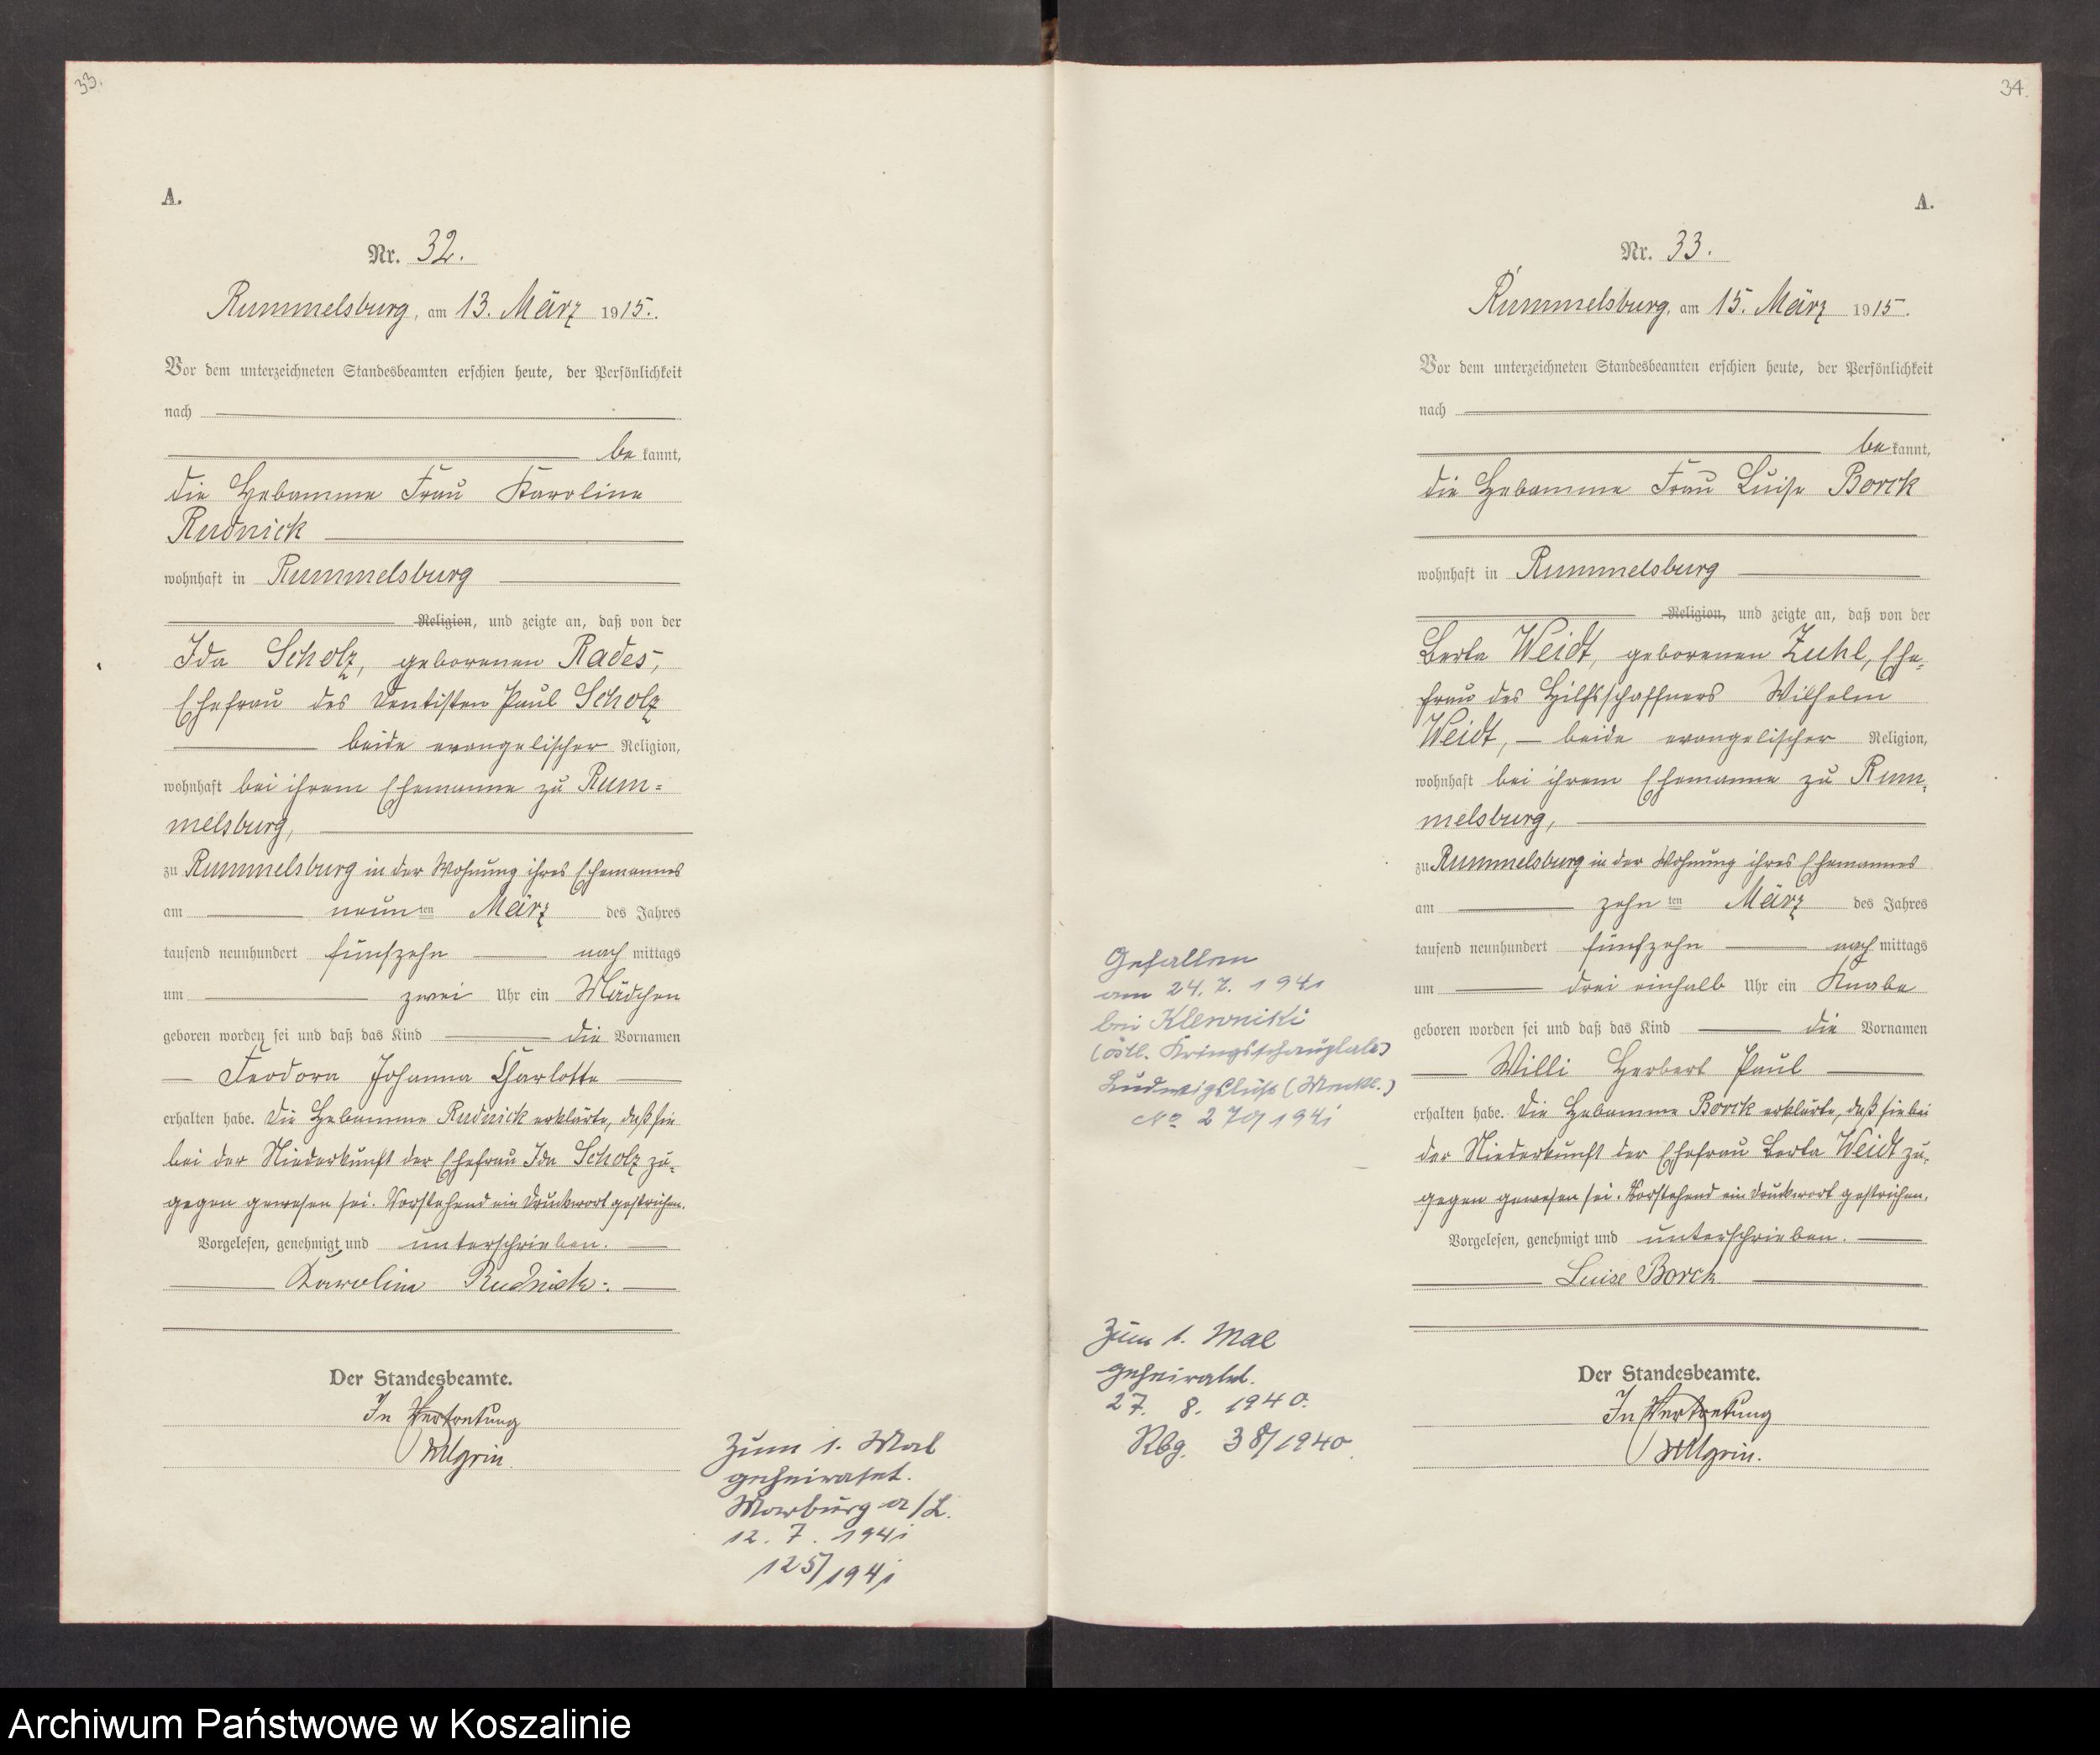 33.
A.
Nr. 32.
Rummelsburg, am 13. März 1915.
Vor dem unterzeichneten Standesbeamten erschien heute, der Persönlichkeit
nach
be kannt,
die Hebamme Frau Karoline
Rudnick
wohnhaft in Rummelsburg
Religion, und zeigte an, daß von der
Ida Scholz, geborenen Rades,
Ehefrau des Dentisten Paul Scholz
beide evangelischer Religion,
wohnhaft bei ihrem Ehemanne zu Rum=
melsburg,
zu Rummelsburg in der Wohnung ihres Ehemannes
am neun ten März des Jahres
tausend neunhundert fünfzehn nach mittags
um zwei Uhr ein Mädchen
geboren worden sei und daß das Kind die Vornamen
Feodora Johanna Charlotte
erhalten habe. Die Hebamme Rudnick erklärte, daß sie
bei der Niederkunft der Ehefrau Ida Scholz zu=
gegen gewesen sei. Vorstehend ein Druckwort gestrichen.
Vorgelesen, genehmigt und unterschrieben.
Karoline Rudnick.
Der Standesbeamte.
In Vertretung
Zum 1. Mal
geheiratet.
Marburg a/L.
12. 7. 1941
125/1941
34.
A.
Nr. 33.
Rummelsburg, am 15. März 1915.
Vor dem unterzeichneten Standesbeamten erschien heute, der Persönlichkeit
nach
be kannt,
die Hebamme Frau Luise Borck
wohnhaft in Rummelsburg
Religion, und zeigte an, daß von der
Berta Weidt, geborenen Zuhl, Ehe=
frau des Hilfsschaffners Wilhelm
Weidt, — beide evangelischer Religion,
wohnhaft bei ihrem Ehemanne zu Rum=
melsburg,
zu Rummelsburg in der Wohnung ihres Ehemannes
am zehn ten März des Jahres
tausend neunhundert fünfzehn nach mittags
um drei einhalb Uhr ein Knabe
geboren worden sei und daß das Kind die Vornamen
Willi Herbert Paul
erhalten habe. Die Hebamme Borck erklärte, daß sie bei
der Niederkunft der Ehefrau Berta Weidt zu=
gegen gewesen sei. Vorstehend ein Druckwort gestrichen.
Vorgelesen, genehmigt und unterschrieben.
Luise Borck
Der Standesbeamte.
In Vertretung
Gefallen
am 24. 7. 1941
bei Klewniki
(östl. Kriegsschauplatz)
Ludwigslust (Meckl.)
No 279/1941
Zum 1. Mal
geheiratet.
27. 8. 1940.
Rbg. 38/1940.
Archiwum Państwowe w Koszalinie